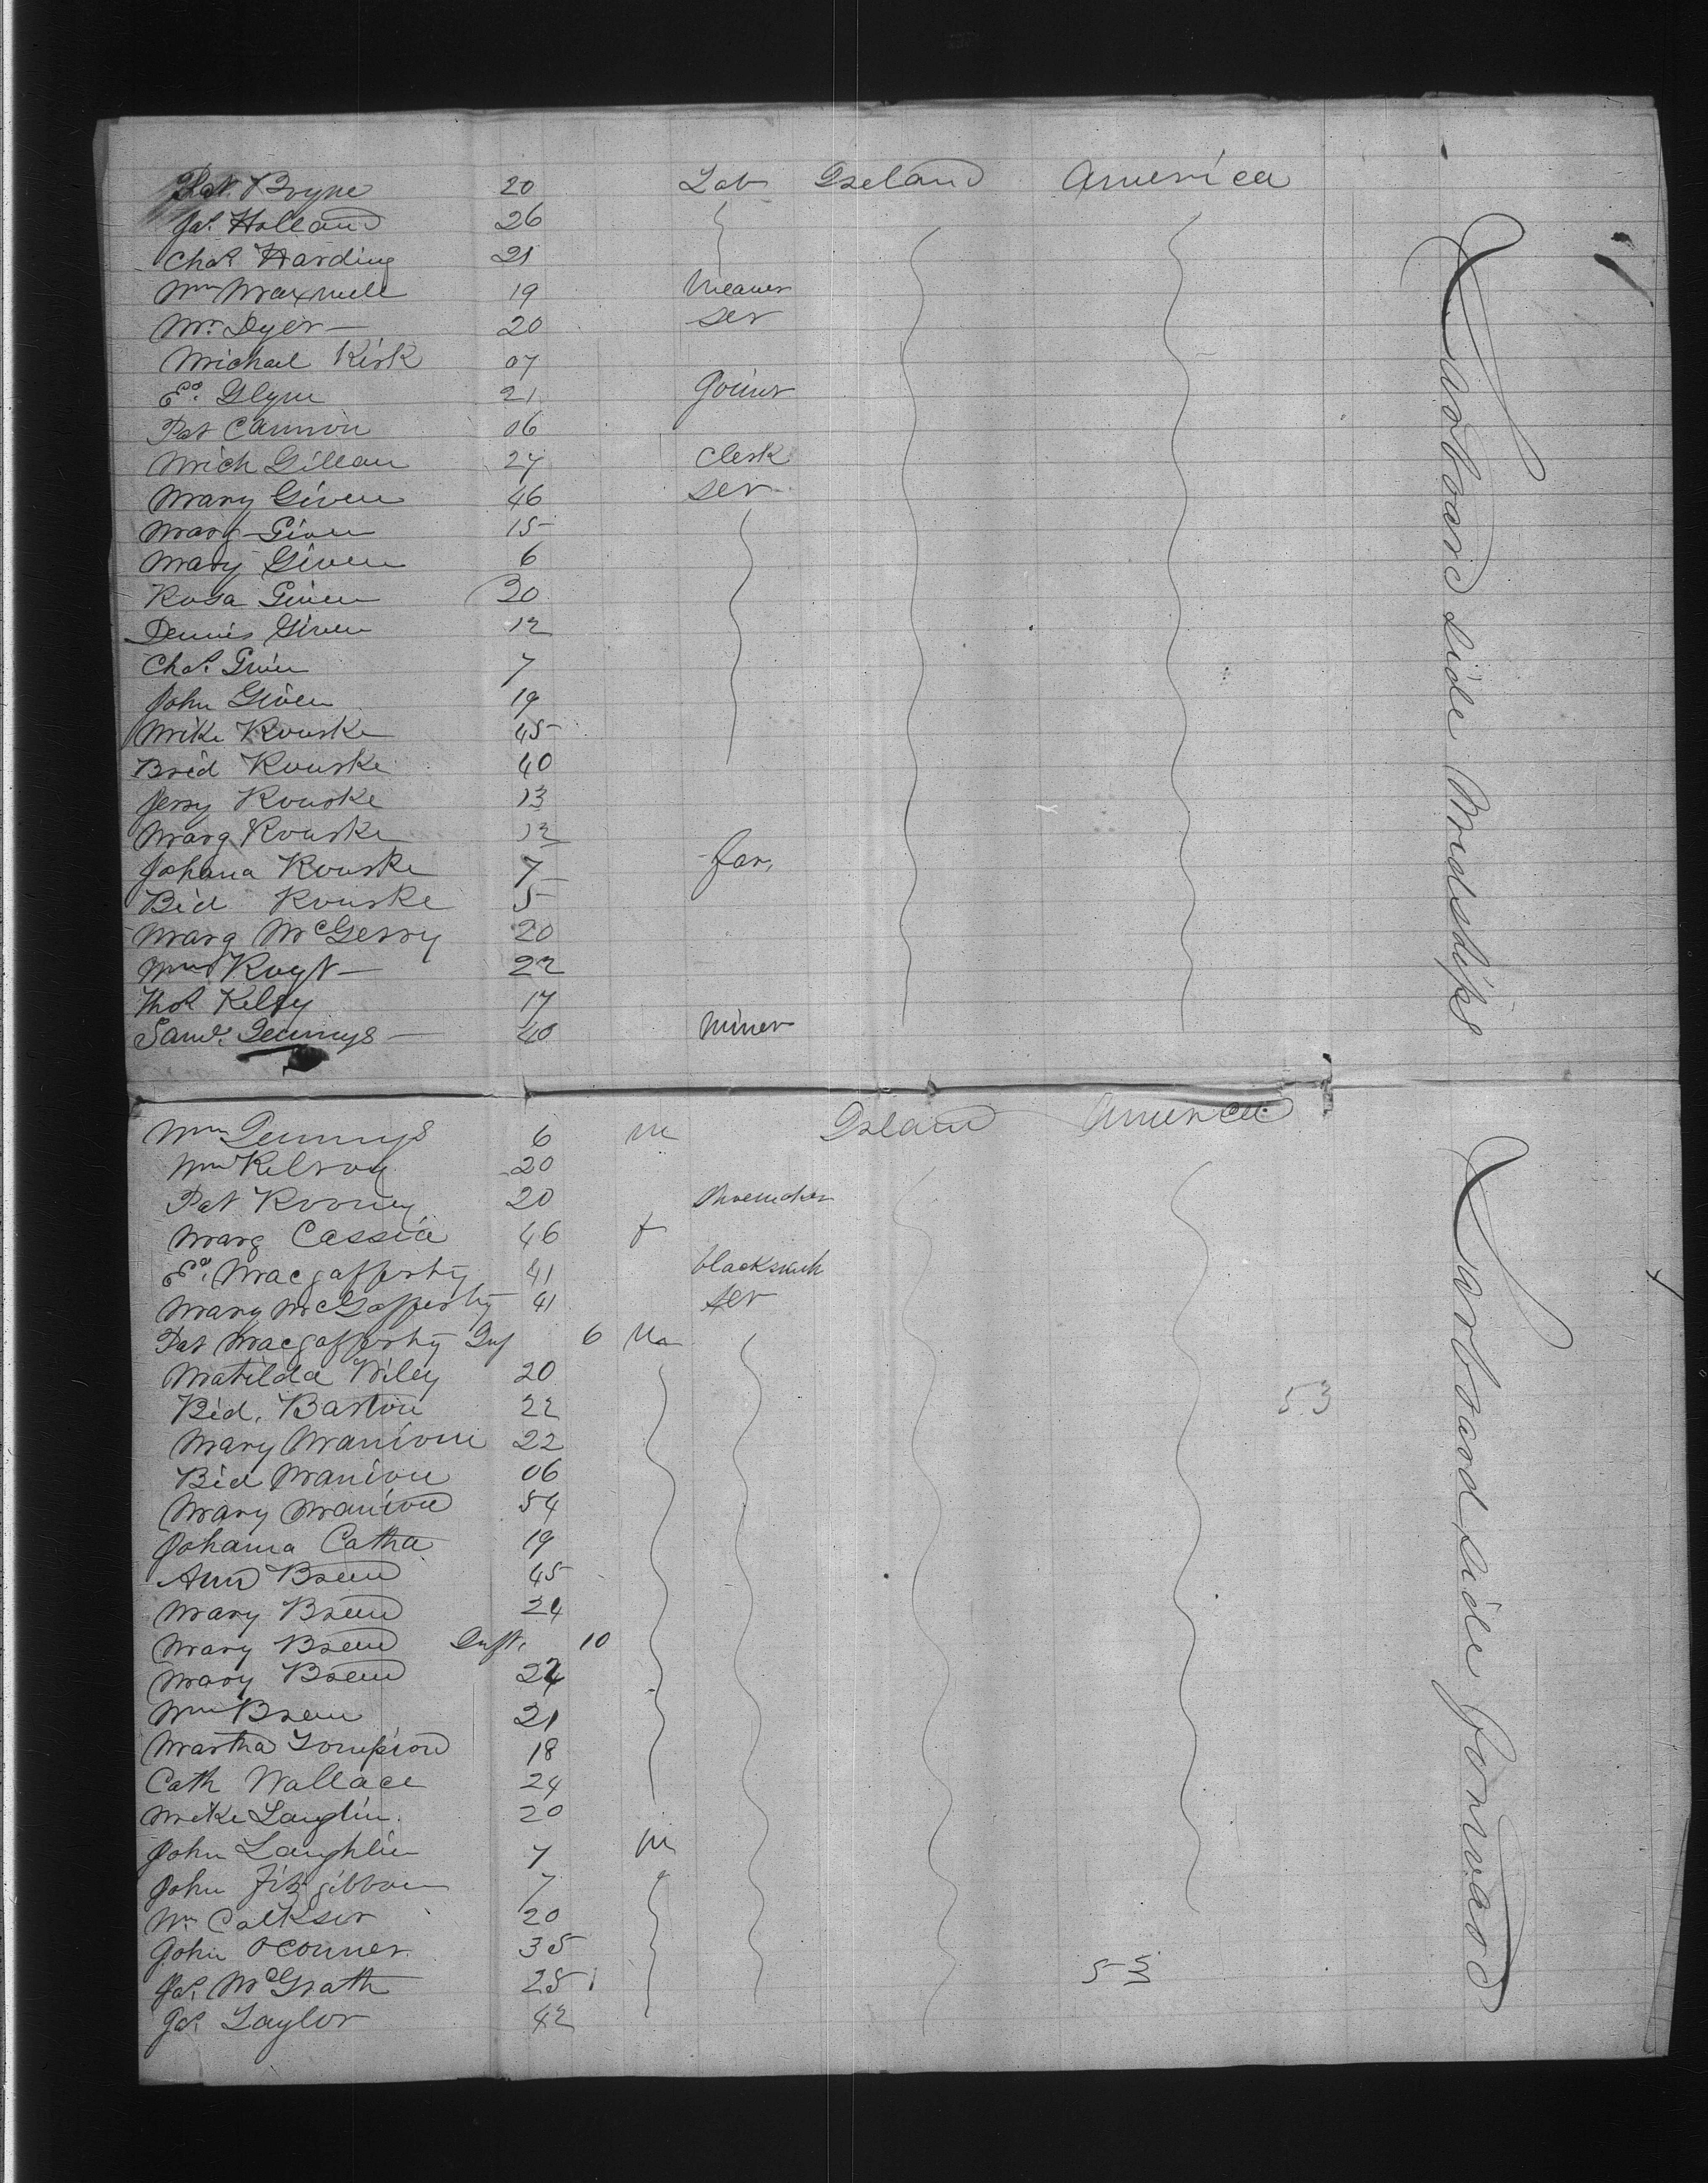 Pat Bryne 20 Lab Ireland America
Jas. Holland 26
Chas Harding 21
Wm Maxwell 19 Weaver
Mr. Dyer 20 Ser
Michael Kirk 07
Ed. Glynn 21 Joiner
Pat Cannon 06
Mich Gillan 27 Clerk
Mary Given 46 Ser
Marg Given 15
Mary Given 6
Rosa Given 30
Dennis Given 12
Chas. Given 7
John Given 19
Mike Rourke 45
Brid Rourke 40
Jerry Rourke 13
Marg Rourke 12
Johana Rourke 7 far,
Bid Rourke 5
Marg McGerry 20
Wm 22
Thos 17
Saml. Jennnys 40 Miner
Larboard side Midships
Wm Jennnys 6 M Ireland America
Wm Kilroy 20
Pat Rooney 20 Shoemaker
Marg Cassia 46 f
Ed. Macgafferty 41 blacksmith
Mary McGafferty 41 ser
Pat Macgafferty Inf 6 Ma
Matilda Wiley 20
Bid. Barton 22 53
Mary Manion 22
Bid Manion 06
Mary Manion 54
Johanna Catha 19
Ann Breen 45
Mary Breen 24
Mary Breen Inft. 10
Mary Breen 24
Wm Breen 21
Martha Tompson 18
Cath Wallace 24
Mike Laughlin 20
John Laughlin 7 M
John Fitzgibbon 7
Wm 20
John OConner 35
Jas. McGrath 25 53
Jas. Taylor 42
Larboard side forward